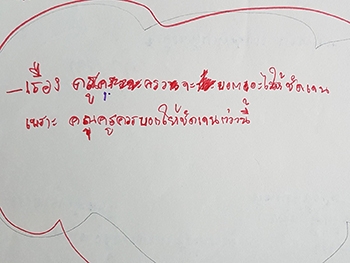 - เรื่อง คุณครู ควรจะ บอกอะไรให้ชัดเจน
เพราะ คุณครูควรบอกให้ชัดเจนกว่านี้